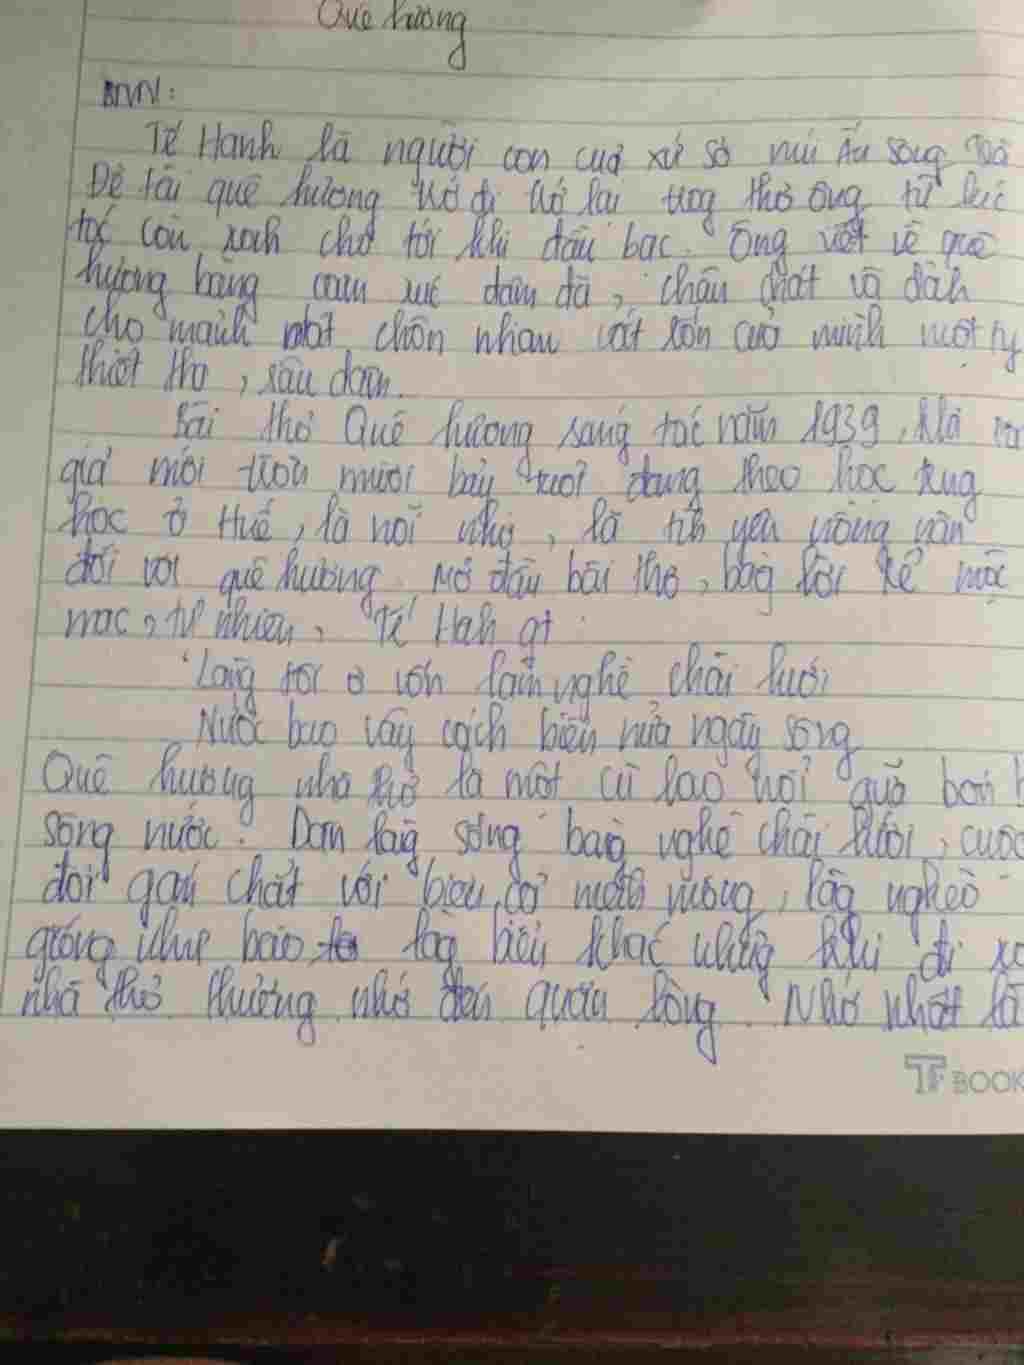 Quê hương
Tế Hanh là người con của xứ sở núi Ấn sông
Đề tài quê hương trở đi trở lại trog thơ ông từ lúc
tóc còn xanh cho tới khi đầu bạc. Ông viết về quê
hương bằng cảm xúc đậm đà, chân chất và dành
cho mảnh đất chôn nhau cắt rốn của mình một
thiết tha, sâu đậm.
Bài thơ Quê hương sáng tác năm 1939, khi
giả mới tròn mười bảy tuổi đang theo học trug
học ở Huế, là nỗi nhớ, là tìh yêu nồng nàn
đối với quê hương. Mở đầu bài thơ, bằg lời kể mộc
mạc, tự nhiên, Tế Hah
"Làng tôi ở vốn làm nghề chài lưới
Nước bao vây cách biển nửa ngày sông
Quê hương nhà thơ là một cù lao nổi giữa bốn
sông nước. Dân làg sống bằg nghề chài lưới, cuộc
đời gắn chặt với biển cả mênh mông, làg nghèo
giống như bao làg biển khác nhưg khi đi xa
nhà thơ thường nhớ đến quặn lòng. Nhớ nhất là
TF BOOK